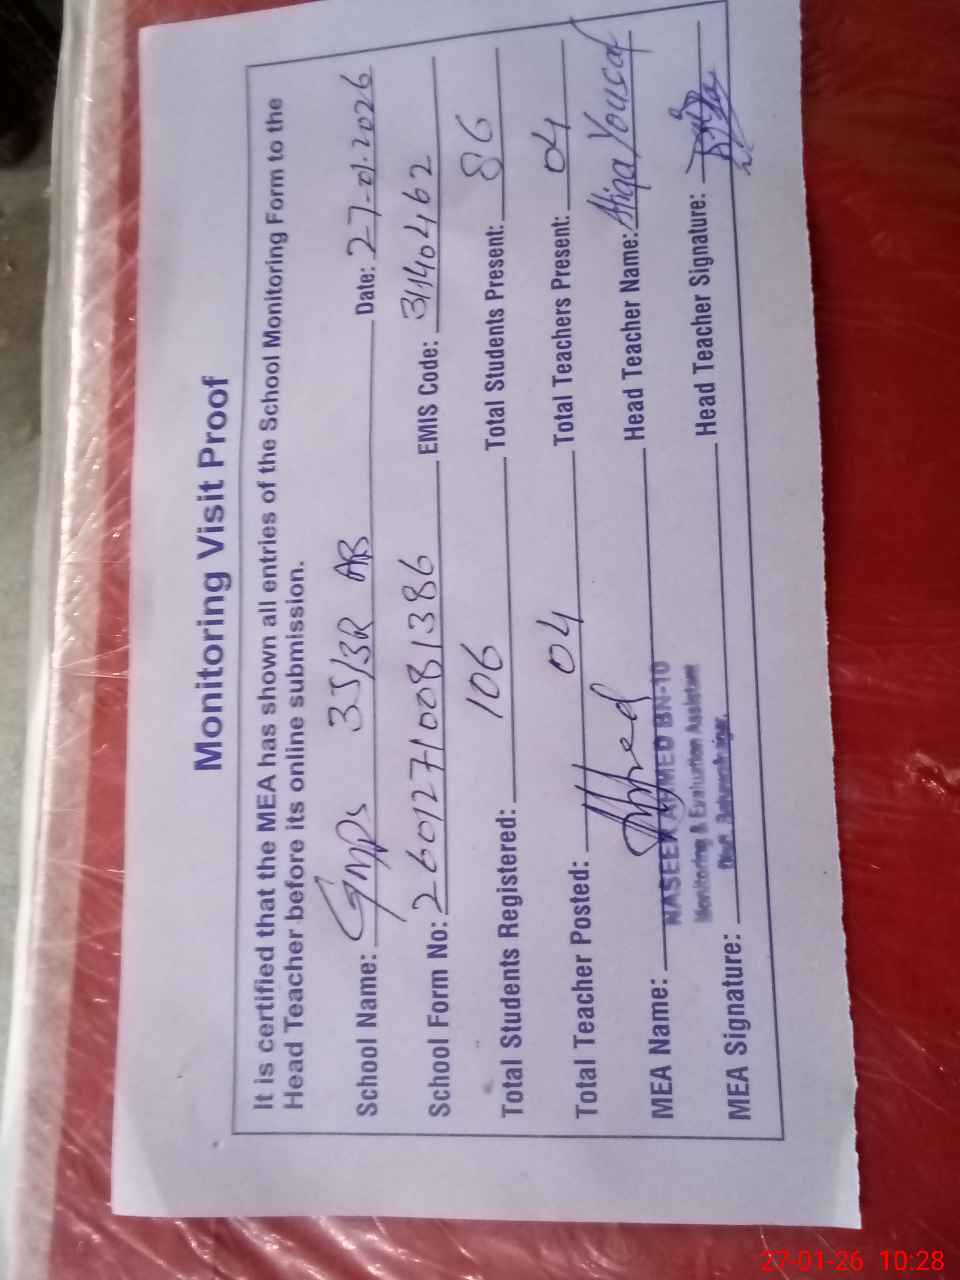 Monitoring Visit Proof
It is certified that the MEA has shown all entries of the School Monitoring Form to the
Head Teacher before its online submission.
School Name: GMPS 35/3R AB Date: 27-01-2026
School Form No: 26012710081386 EMIS Code: 31140462
Total Students Registered: 106 Total Students Present: 86
Total Teacher Posted: 04 Total Teachers Present: 04
MEA Name: Head Teacher Name: Atiqa Yousaf
NASEER AHMED BN-10
Monitoring & Evaluation Assistant
MEA Signature: Head Teacher Signature:
27-01-26 10:28